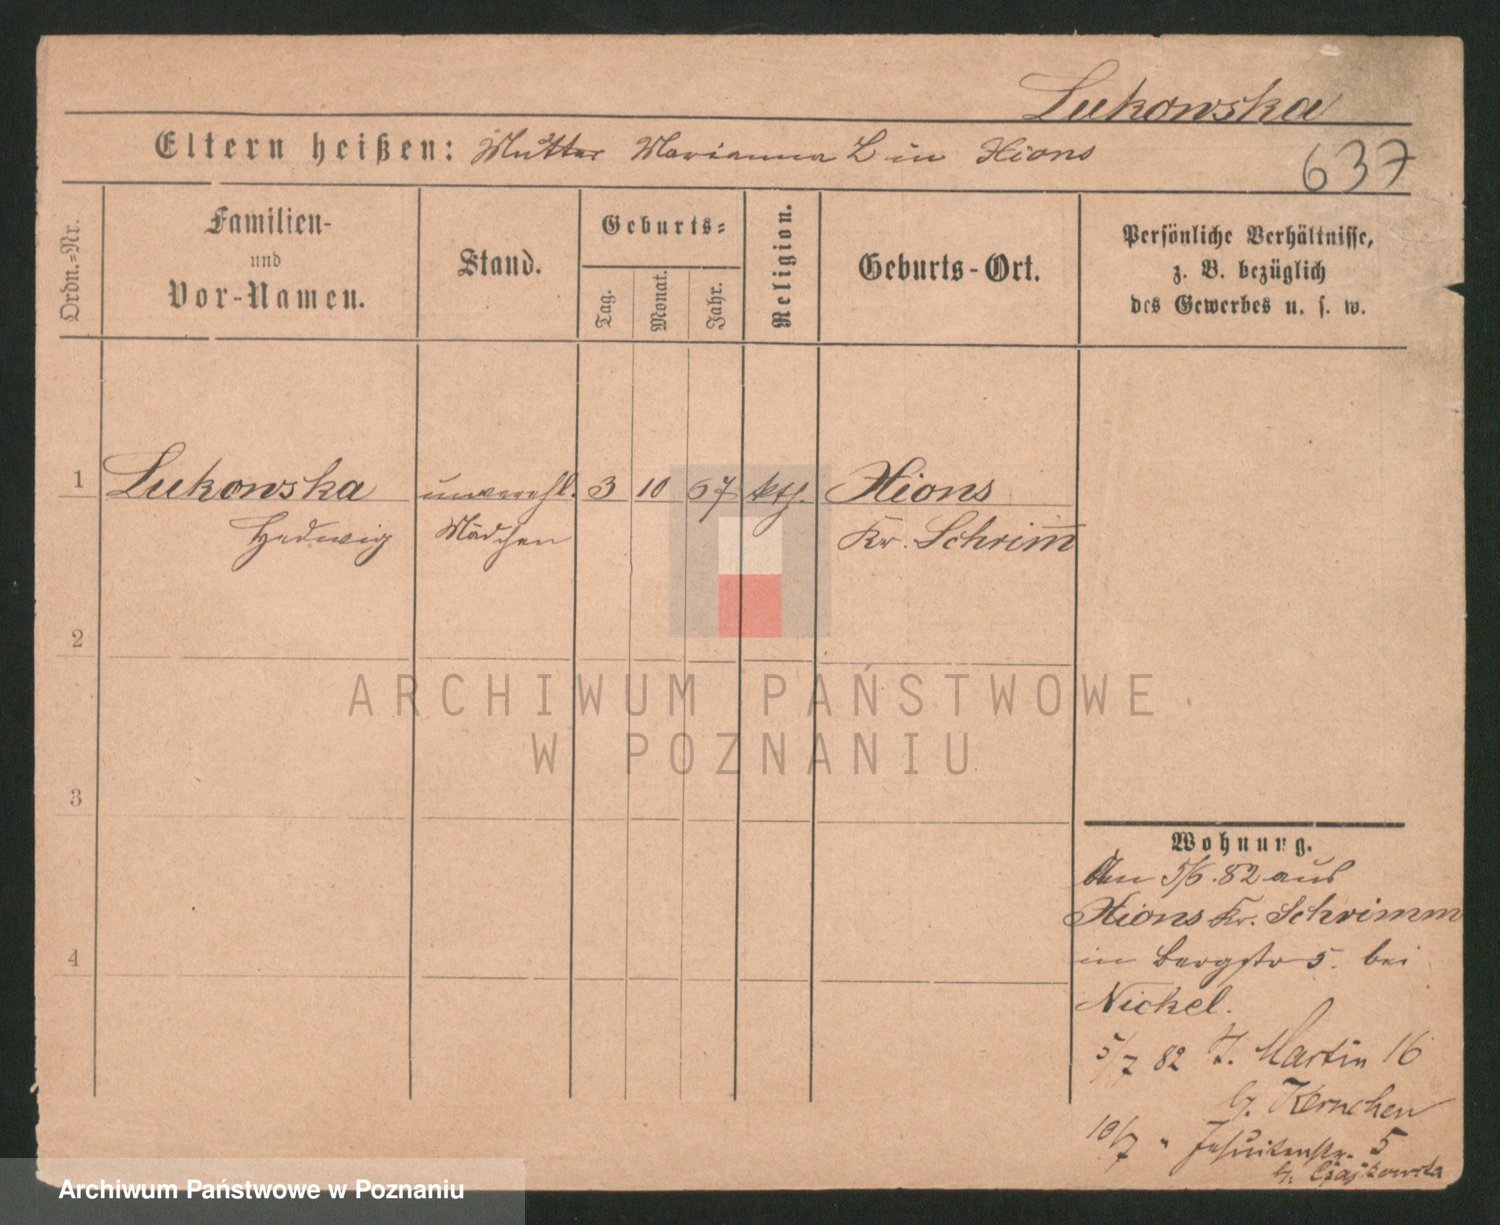 Lukowska
Eltern heißen: Mutter Marianna L in Xions
637
Ordn.=Nr.
Familien-
und
Vor-Namen.
Stand.
Geburts=
Tag.
Monat.
Jahr.
Religion.
Geburts-Ort.
Persönliche Verhältnisse,
z. B. bezüglich
des Gewerbes u. s. w.
1 Lukowska unverehl. 3 10 67 kth. Xions
Hedwig Mädchen Kr. Schrim̅
2
3
4
ARCHIWUM PAŃSTWOWE
W POZNANIU
Wohnung.
An 5/6. 82 aus
Xions Kr. Schrimm
in Bergstr 5. bei
Nickel.
5/7 82 St. Martin 16
b. Kernchen
10/7 " Jesuitenstr. 5
b. Czajkowska
Archiwum Państwowe w Poznaniu